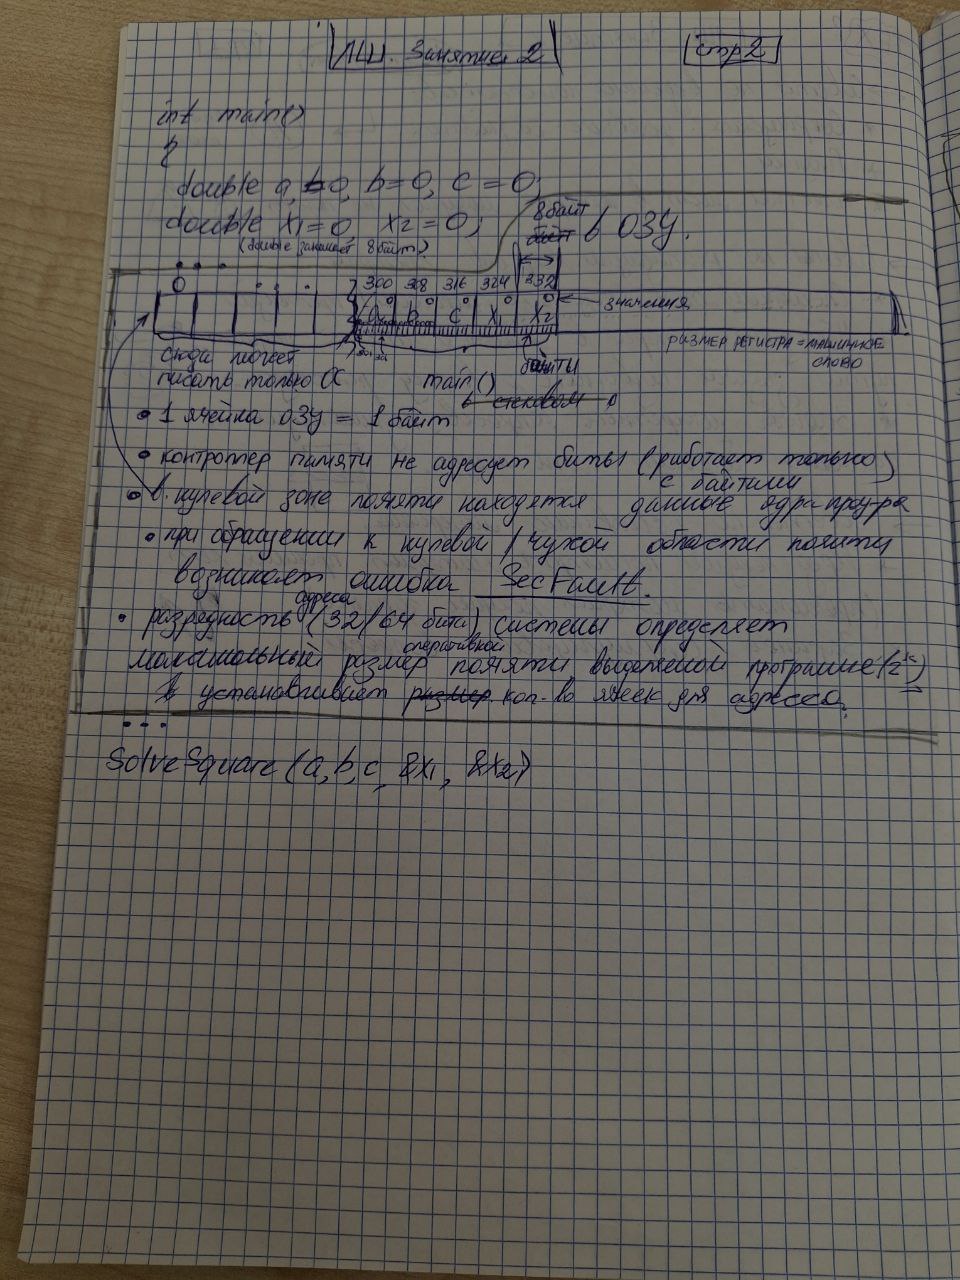 ЛШ. Занятие 2
стр 2
int main()
{
double a=0, b=0, c=0;
double x1=0, x2=0;
(double занимает 8 байт)
...
8 байт
в ОЗУ.
0 ... 300 308 316 324 332
0 0 0 0 0
значения
a b c x1 x2
размер регистра = машинное
слово
сюда может
писать только ОС
main()
байты
• 1 ячейка ОЗУ = 1 байт
• контроллер памяти не адресует биты (работает только)
с байтами
• в нулевой зоне памяти находятся данные ядра
• при обращении к нулевой / чужой области памяти
возникает ошибка SecFault.
адреса
• разрядность (32/64 бита) системы определяет
оперативной
максимальный размер памяти выделяемой программе
устанавливает размер кол-во ячеек для адреса.
...
SolveSquare (a, b, c, &x1, &x2)